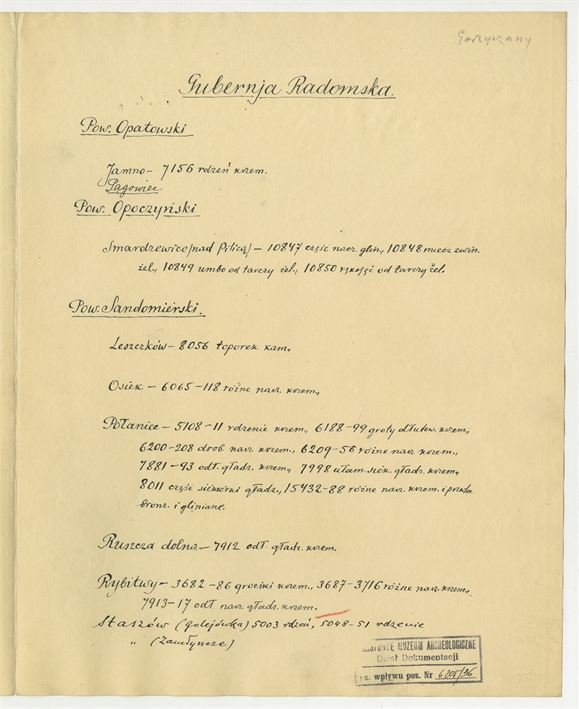 Gorzyczany
Gubernja Radomska.
Pow. Opatowski
Jamno – 7156 rdzeń krzem.
Pągowiec
Pow. Opoczyński
Smardzewice (nad Pilicą) – 10847 część nacz. glin., 10848 miecz zwin.
żel., 10849 umbo od tarczy żel., 10850 rękojeść od tarczy żel.
Pow. Sandomierski.
Leszczków – 8056 toporek kam.
Osiek – 6065–118 różne narz. krzem.,
Połaniec – 5108–11 rdzenie krzem., 6188–99 groty dłutow. krzem.,
6200–208 drob. narz. krzem., 6209–56 różne narz. krzem.,
7881–93 odł. gładz. krzem., 7998 ułam. siek. gładz. krzem.,
8011 część siekierki gładz., 15432–88 różne narz. krzem. i
bronz. i gliniane.
Ruszcza dolna – 7912 odł. gładz. krzem.
Rybitwy – 3682–86 grociki krzem., 3687–3716 różne narz. krzem.,
7913–17 odł. narz. gładz. krzem.
Staszów (Golejówka) 5003 rdzeń, 5048–51 rdzenie
„ (
MUZEUM ARCHEOLOGICZNE
Dział Dokumentacji
wpływu poz. Nr